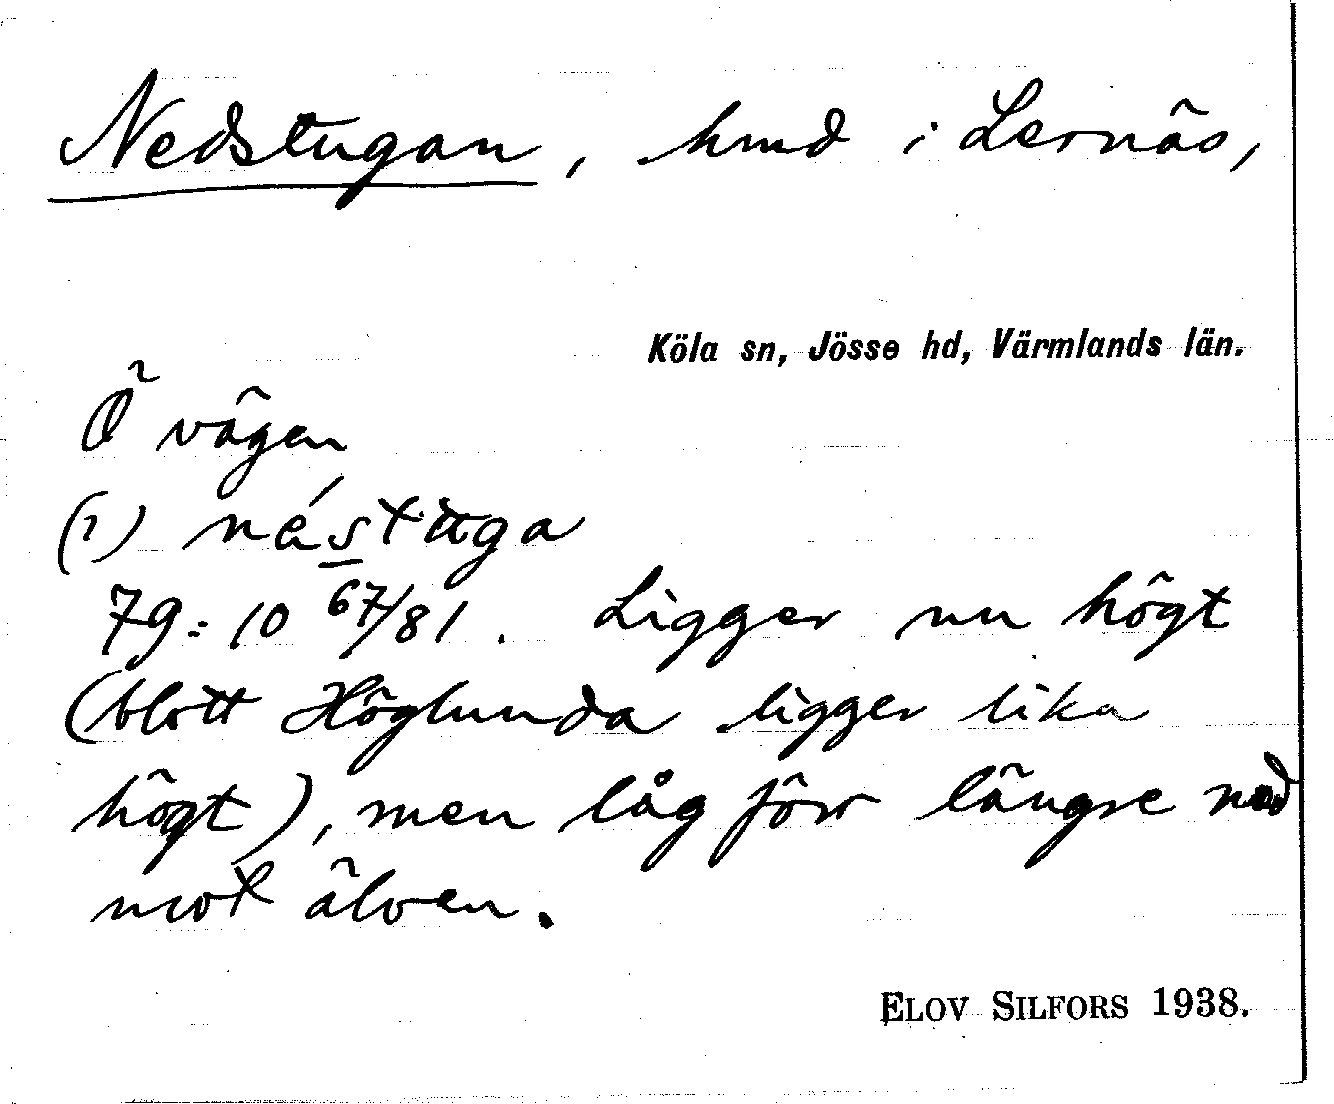 Nedstugan, hmd i Lernäs,
Köla sn, Jösse hd, Värmlands län.
Ö vägen
(i) néstuga
Jg: 10 67/81. Ligger nu högt
(blott Höglunda ligger lika
högt), men låg förr längre ned
mot älven.
ELOV SILFORS 1938.